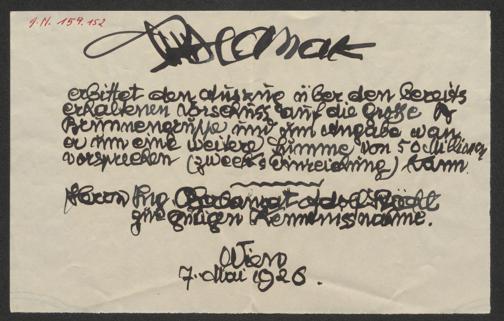 J.N. 159.152
erbittet den Auszug über den bereits
erhaltenen Vorschuss auf die Große
Brunnengruppe und um Angabe wan
er um eine weitere Summe von 50 Millionen
vorsprechen (zwecks Einreichung) kann
Herrn Ing
zur gütigen Kenntnisnahme.
Wien
7. Mai 1926.